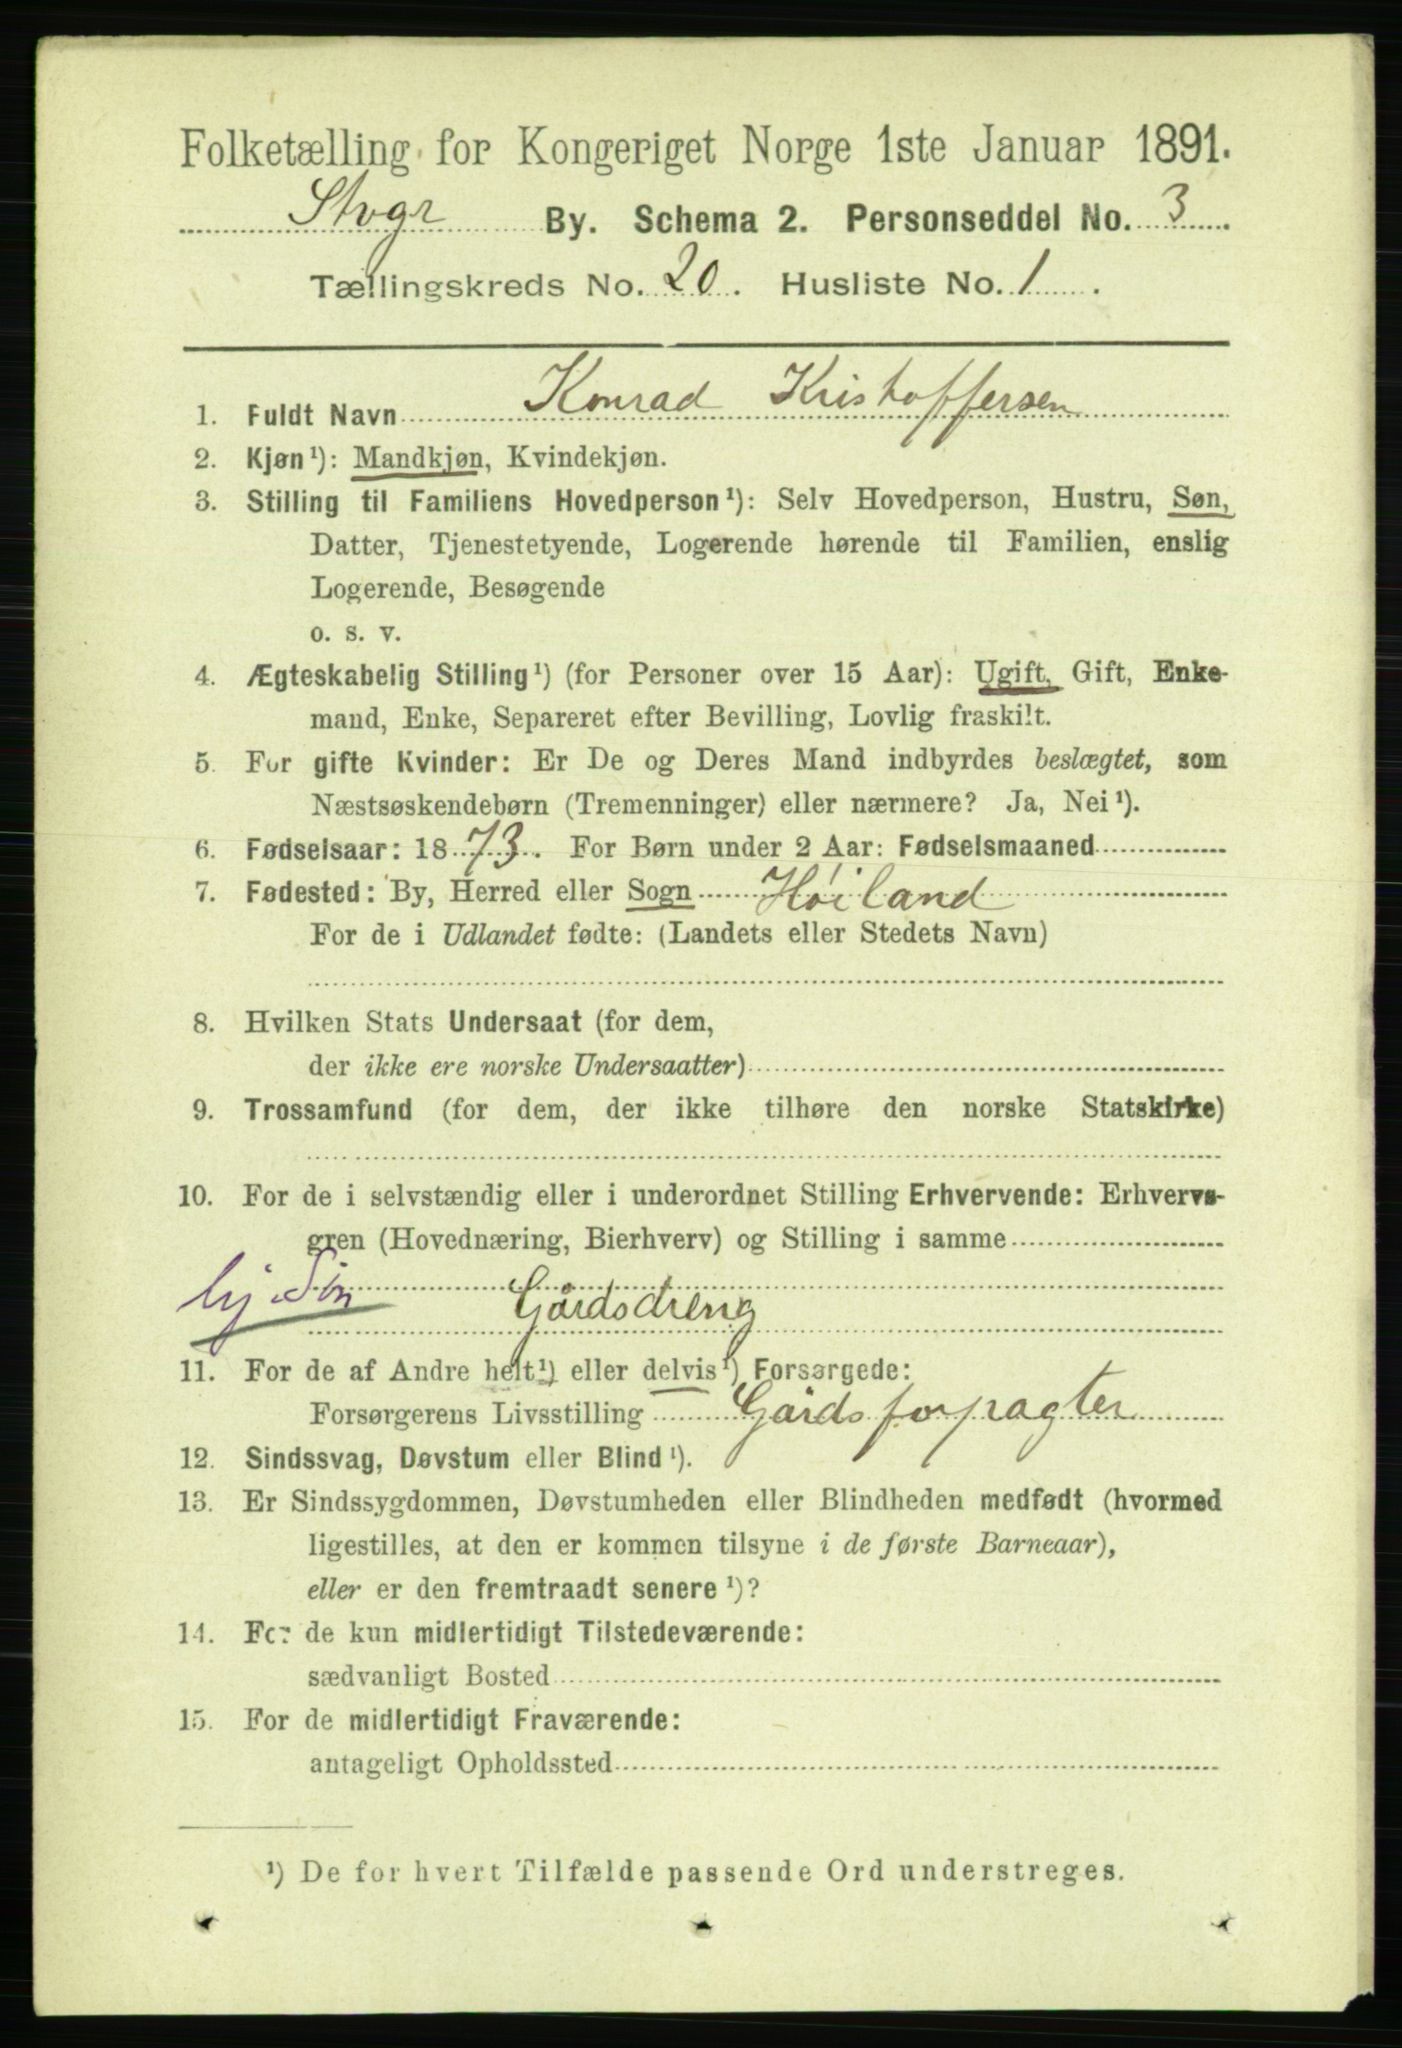 Folketælling for Kongeriget Norge 1ste Januar 1891.
Stvgr By. Schema 2. Personseddel No. 3.
Tællingskreds No. 20. Husliste No. 1.
1. Fuldt Navn Konrad Kristoffersen
2. Kjøn¹): Mandkjøn, Kvindekjøn.
3. Stilling til Familiens Hovedperson¹): Selv Hovedperson, Hustru, Søn,
Datter, Tjenestetyende, Logerende hørende til Familien, enslig
Logerende, Besøgende
o. s. v.
4. Ægteskabelig Stilling¹) (for Personer over 15 Aar): Ugift, Gift, Enke-
mand, Enke, Separeret efter Bevilling, Lovlig fraskilt.
5. For gifte Kvinder: Er De og Deres Mand indbyrdes beslægtet, som
Næstsøskendebørn (Tremenninger) eller nærmere? Ja, Nei¹).
6. Fødselsaar: 1873. For Børn under 2 Aar: Fødselsmaaned
7. Fødested: By, Herred eller Sogn Høiland
For de i Udlandet fødte: (Landets eller Stedets Navn)
8. Hvilken Stats Undersaat (for dem,
der ikke ere norske Undersaatter)
9. Trossamfund (for dem, der ikke tilhøre den norske Statskirke)
10. For de i selvstændig eller i underordnet Stilling Erhvervende: Erhvervs-
gren (Hovednæring, Bierhverv) og Stilling i samme
hj. Søn Gårdsdreng
11. For de af Andre helt¹) eller delvis¹) Forsørgede:
Forsørgerens Livsstilling Gårdsforpagter
12. Sindssvag, Døvstum eller Blind¹).
13. Er Sindssygdommen, Døvstumheden eller Blindheden medfødt (hvormed
ligestilles, at den er kommen tilsyne i de første Barneaar),
eller er den fremtraadt senere¹)?
14. For de kun midlertidigt Tilstedeværende:
sædvanligt Bosted
15. For de midlertidigt Fraværende:
antageligt Opholdssted
¹) De for hvert Tilfælde passende Ord understreges.